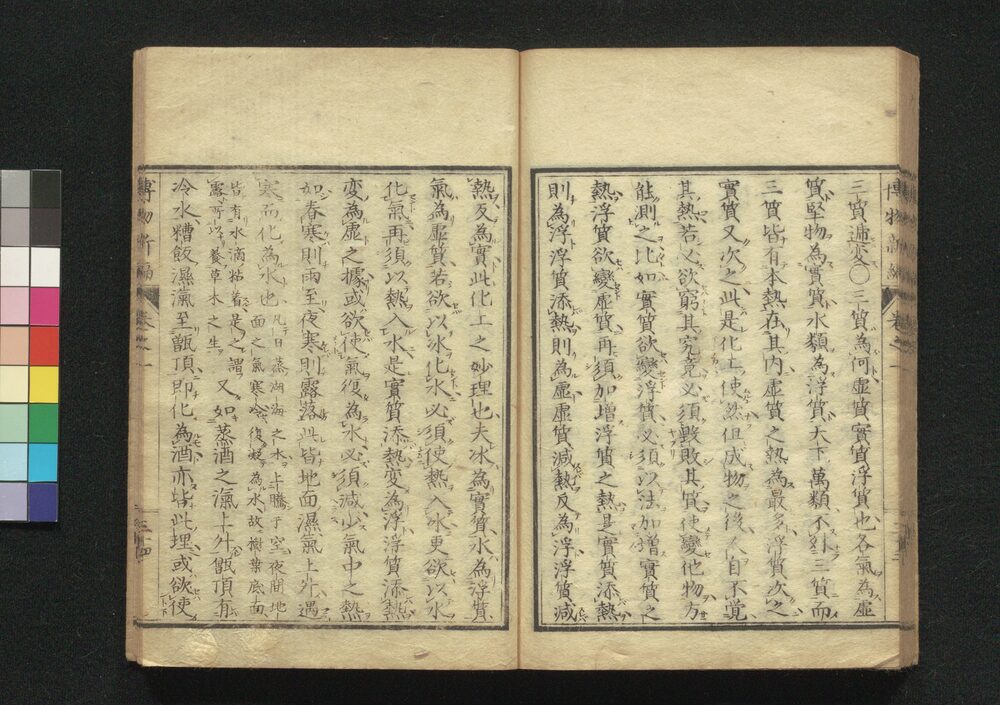 三質遞変〇三質為何虛質實質浮質也各氣為虛
質堅物為實質水類為浮質天下萬類不外三質而
三質皆有本熱在其内虛質之熱為最多浮質次之
實質又次之此是化工使然但成物之後人自不覚
其熱若必欲窮其究竟必須毀敗其質使變他物方
能測之比如實質欲變浮質必須以法加增實質之
熱浮質欲變虛質再須加增浮質之熱是實質添熱
則為浮浮質添熱則為虛虛質減熱反為浮浮質減
熱反為實此化工之妙理也夫冰為實質水為浮質
氣為虛質若欲以冰化水必須使熱入冰更欲以水
化氣再須以熱入水是實質添熱変為浮浮質添熱
変為虛之據或欲使氣復為水必須減少氣中之熱
如春寒則雨至夜寒則露落此皆地面濕氣上升遇
寒而化為水也凡日蒸湖海之水上騰于空夜間地
面之氣寒冷復凝為水故樹葉底面
皆有水滴粘着是之謂
露所以養草木之生又如蒸酒之氣上升甑頂有
冷水糟飯濕氣至甑頂即化為酒亦皆此理或欲使
博物新編
卷之一